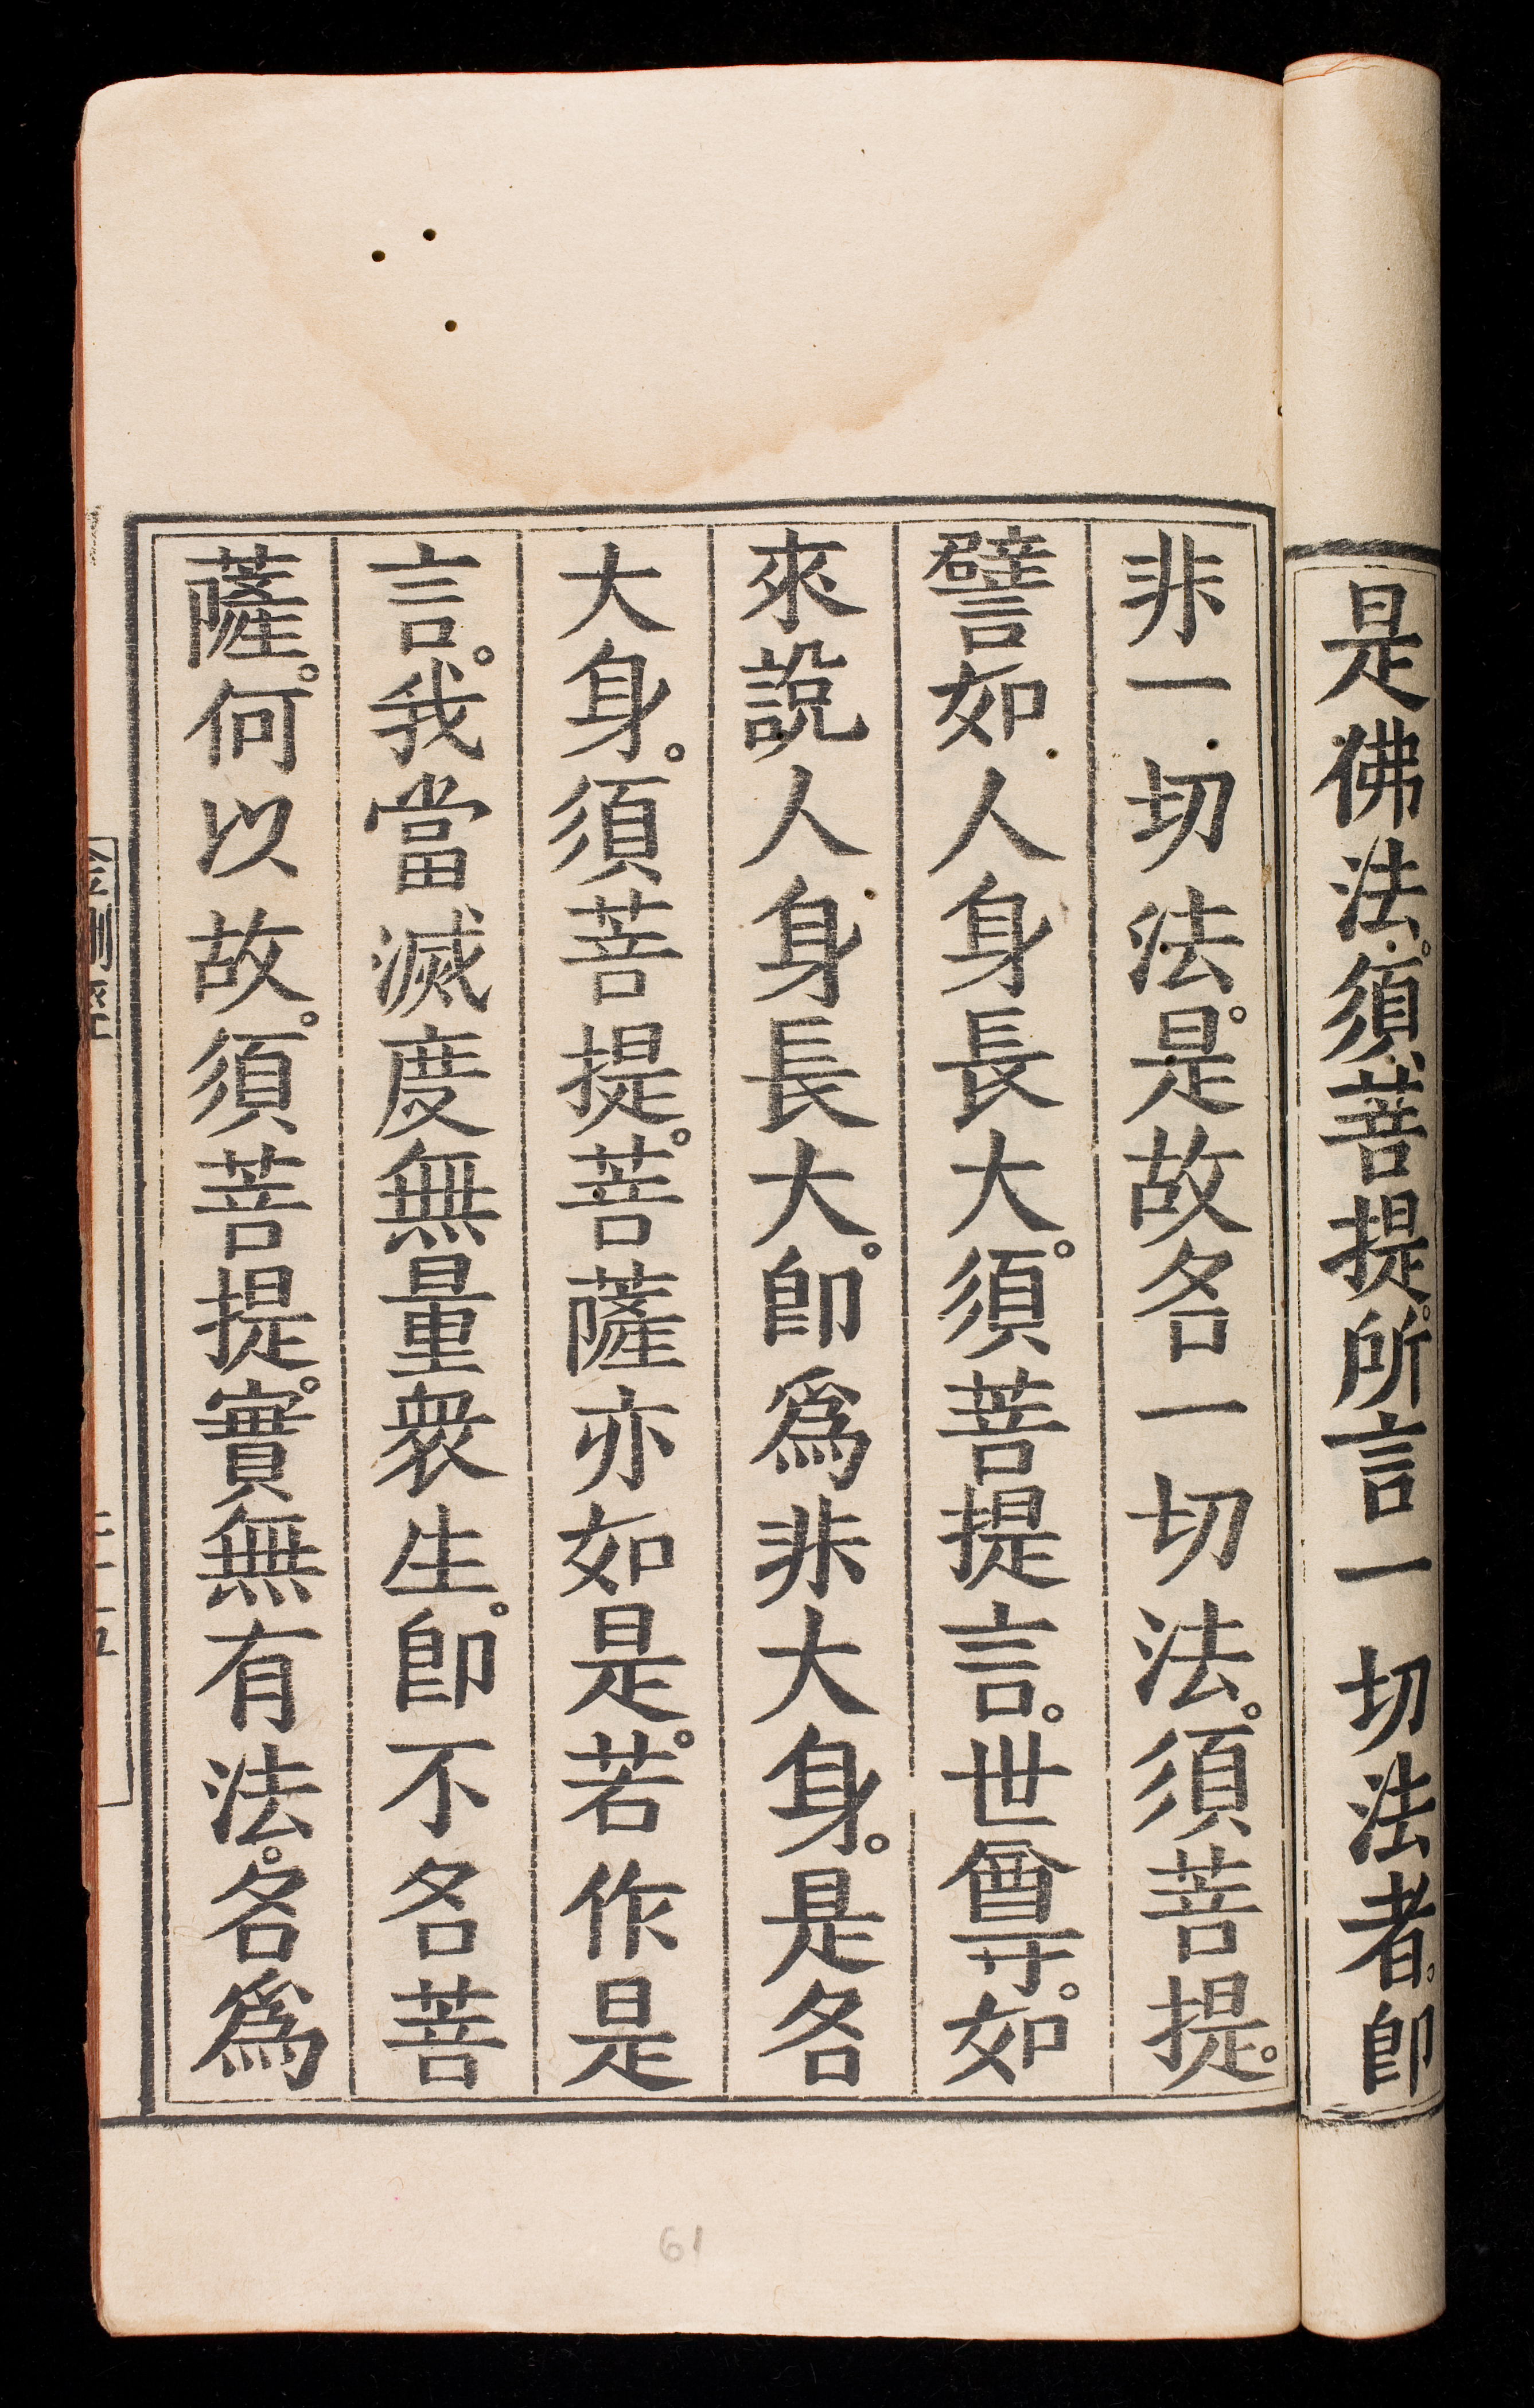 是佛法。須菩提。所言一切法者。即
非一切法。是故名一切法。須菩提。
譬如人身長大。須菩提言。世尊。如
來說人身長大。即為非大身。是名
大身。須菩提。菩薩亦如是。若作是
言。我當滅度無量衆生。即不名菩
薩。何以故。須菩提。實無有法。名為
61